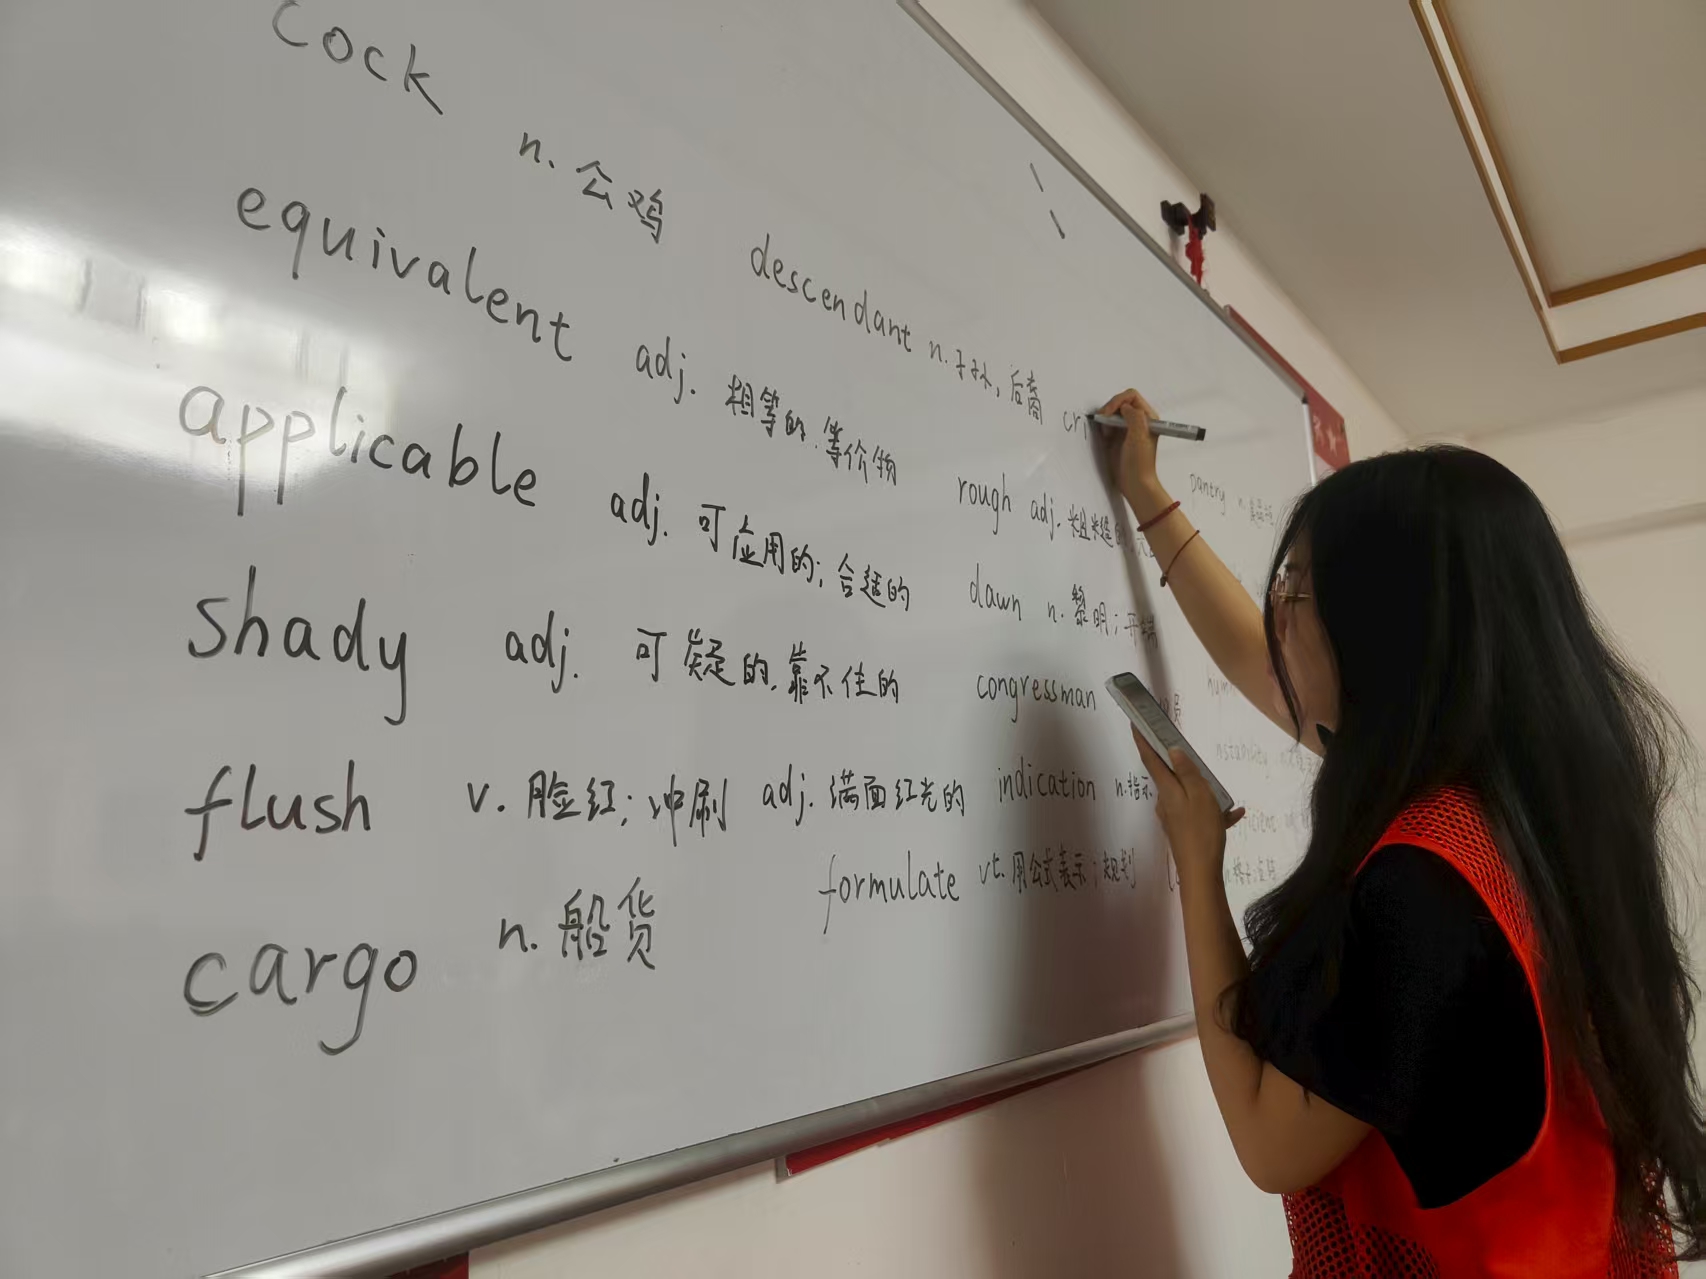 cock n. 公鸡
equivalent adj. 相等的. 等价物
applicable adj. 可应用的; 合适的
shady adj. 可疑的, 靠不住的
flush v. 脸红; 冲刷 adj. 满面红光的
cargo n. 船货
descendant n. 子孙, 后裔 cri
rough adj. 粗糙的
dawn n. 黎明;
congressman
indication n. 指示
formulate vt. 用公式表示; 规划
pantry n.